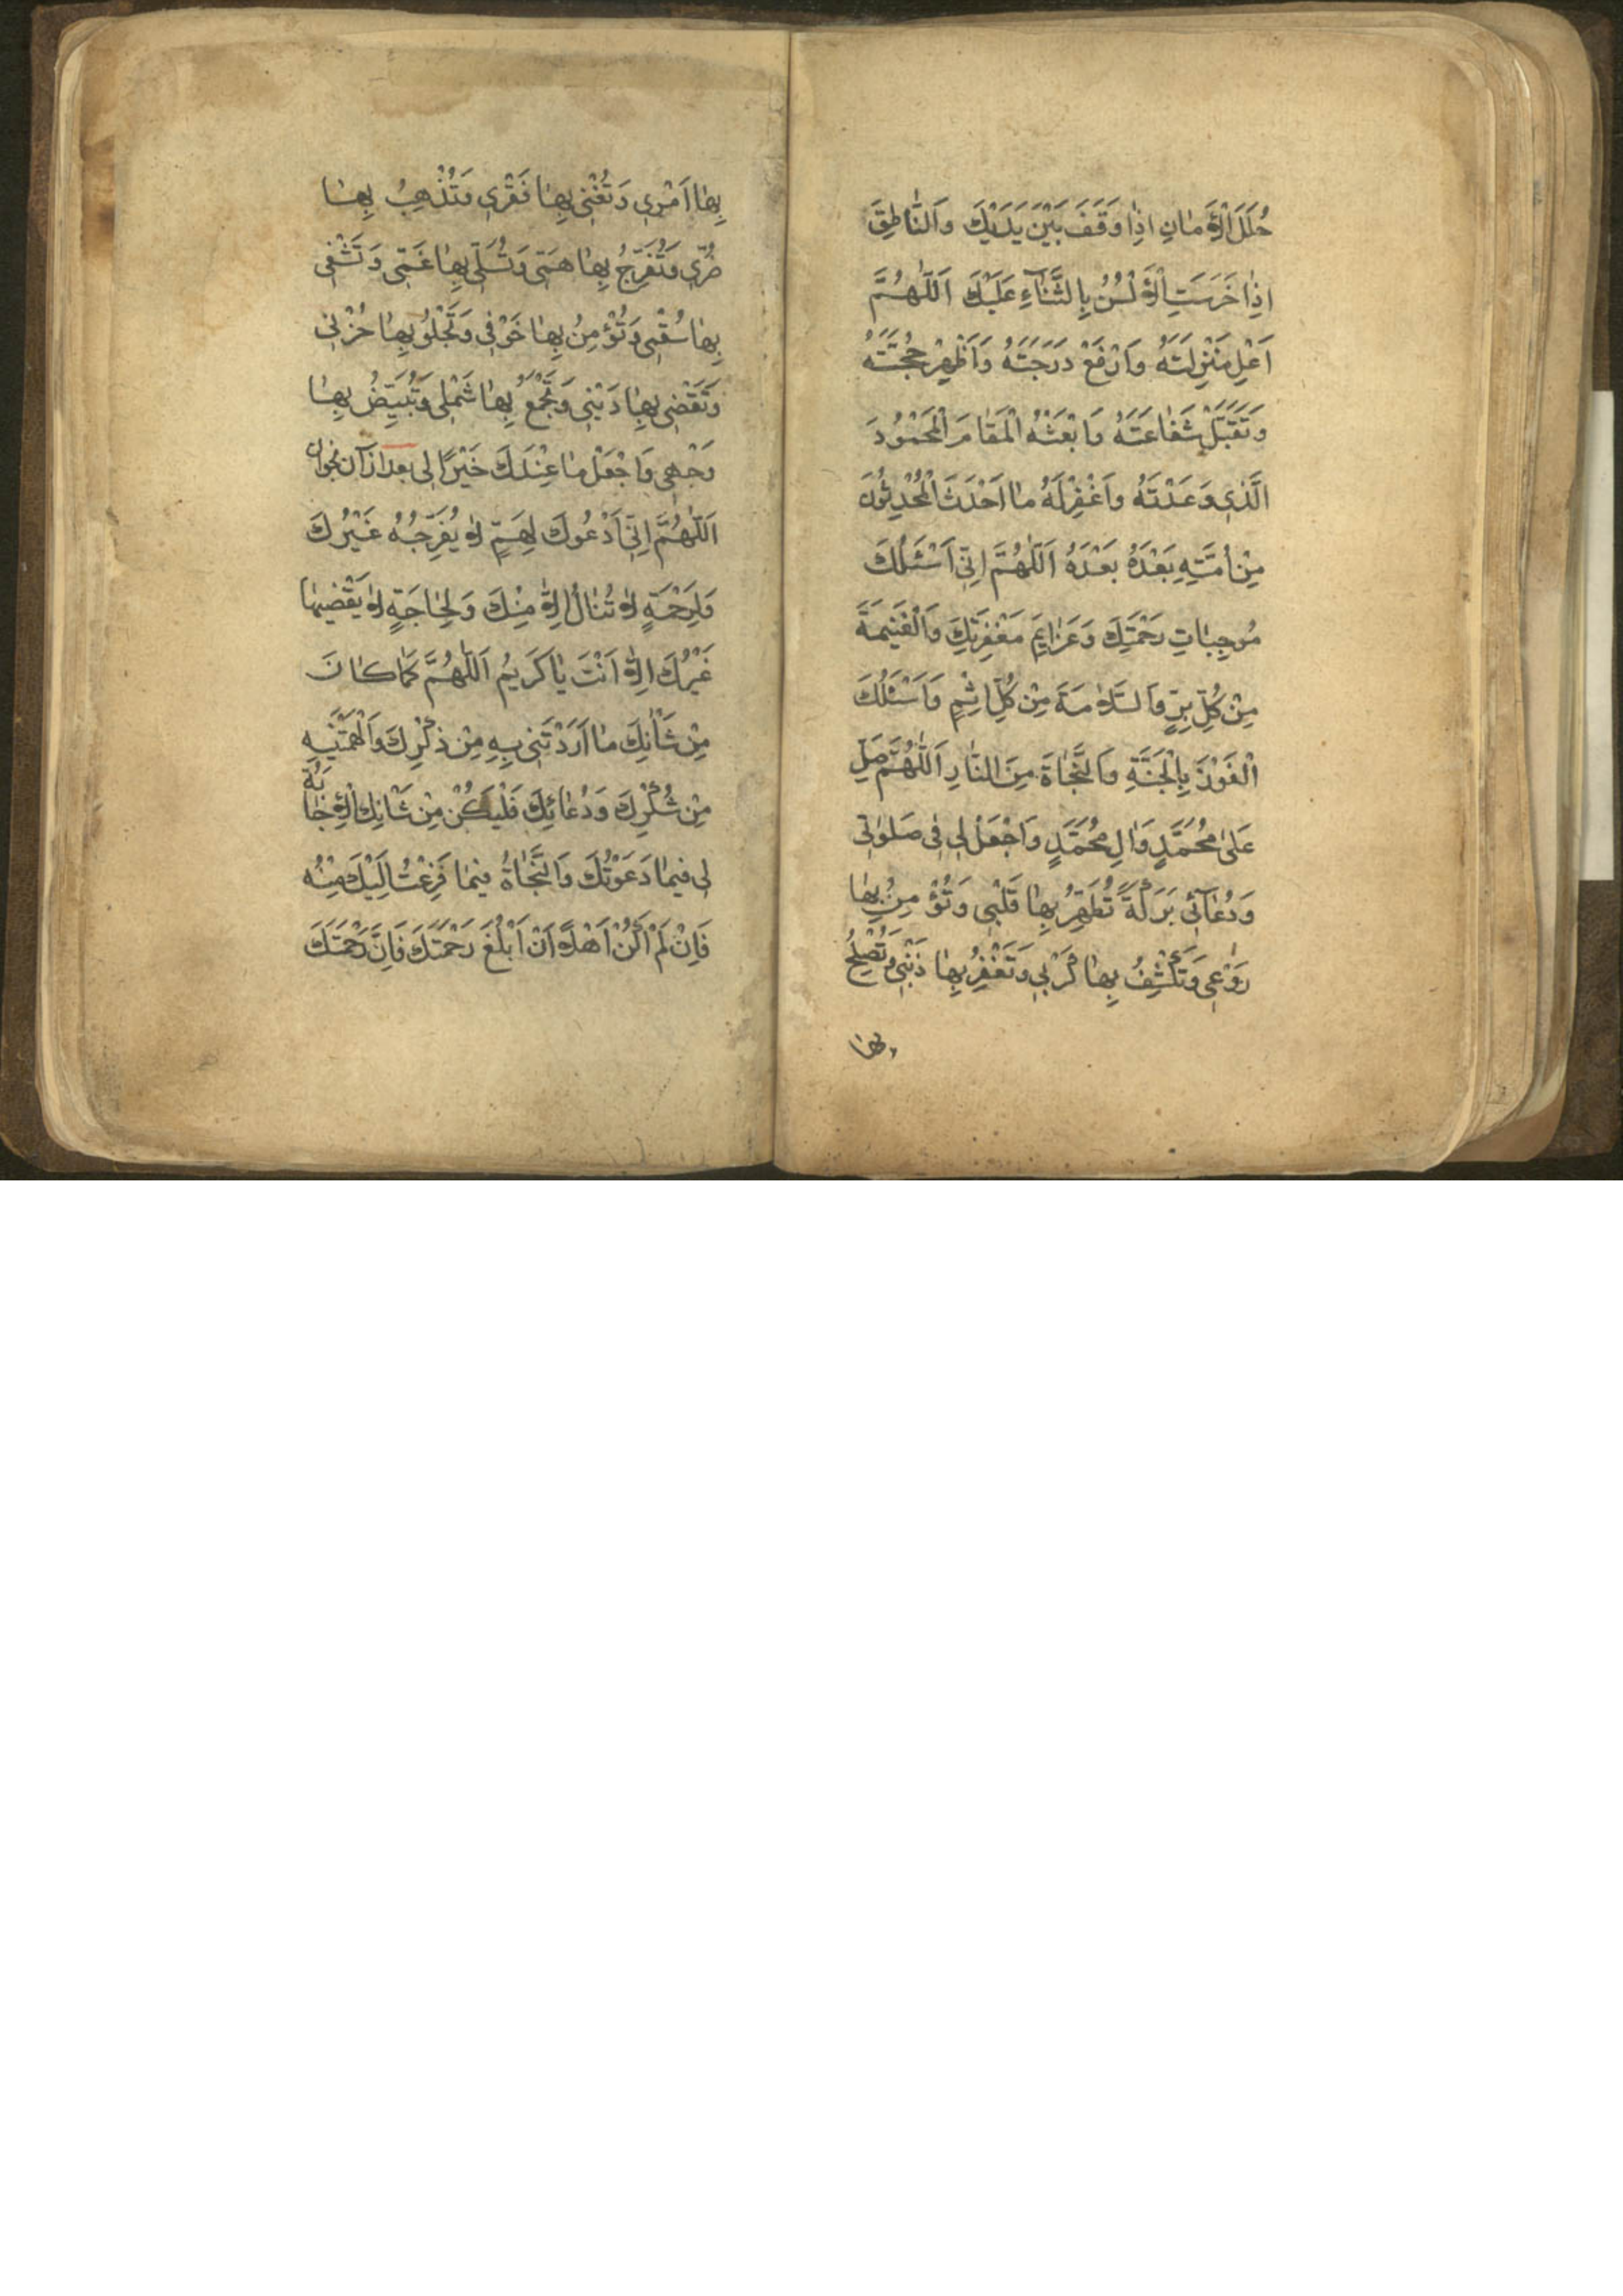 حُلَلَ الْاَمٰانِ اِذٰا وَقَفَ بَيْنَ يَدَيْكَ وَالنّٰاطِقَ
اِذٰا خَرَسَتِ الْاَلْسُنُ بِالثَّنٰآءِ عَلَيْكَ اَللّٰهُمَّ
اَعْلِ مَنْزِلَتَهُ وَارْفَعْ دَرَجَتَهُ وَاَظْهِرْ حُجَّتَهُ
وَتَقَبَّلْ شَفٰاعَتَهُ وَابْعَثْهُ الْمَقٰامَ الْمَحْمُودَ
الَّذِي وَعَدْتَهُ وَاغْفِرْ لَهُ مٰا اَحْدَثَ الْمُحْدِثُونَ
مِنْ اُمَّتِهِ بَعْدَهُ بَعْدَهُ اَللّٰهُمَّ اِنّيِ اَسْئَلُكَ
مُوجِبٰاتِ رَحْمَتِكَ وَعَزٰايِمَ مَغْفِرَتِكَ وَالْغَنيِمَةَ
مِنْ كُلِّ بِرٍّ وَالسَّلاٰمَةَ مِنْ كُلِّ اِثْمٍ وَاَسْئَلُكَ
الْفَوْزَ بِالْجَنَّةِ وَالنَّجٰاةَ مِنَ النّٰارِ اَللّٰهُمَّ صَلِّ
عَلىٰ مُحَمَّدٍ وَاٰلِ مُحَمَّدٍ وَاجْعَلْ ليِ فيِ صَلَوٰتيِ
وَدُعٰآئيِ بَرَكَةً تُطَهِّرُ بِهٰا قَلْبيِ وَتُؤْمِنُ بِهٰا
رَوْعيِ وَتَكْشِفُ بِهٰا كَرْبيِ وَتَغْفِرُ بِهٰا ذَنْبيِ وَتُصْلِحُ
بِهٰا
بِهٰا اَمْريِ وَتُغْنيِ بِهٰا فَقْريِ وَتُذْهِبُ بِهٰا
ضُرّيِ وَتُفَرِّجُ بِهٰا هَمّيِ وَتُسَلّيِ بِهٰا غَمّيِ وَتَشْفيِ
بِهٰا سُقْميِ وَتُؤْمِنُ بِهٰا خَوْفيِ وَتَجْلُوُ بِهٰا حُزْنيِ
وَتَقْضيِ بِهٰا دَيْنيِ وَتَجْمَعُ بِهٰا شَمْليِ وَتُبَيِّضُ بِهٰا
وَجْهيِ وَاجْعَلْ مٰا عِنْدَكَ خَيْرًا ليِ بعد از آن بخوان
اَللّٰهُمَّ اِنّيِ اَدْعُوكَ لِهَمٍّ لاٰ يُفَرِّجُهُ غَيْرُكَ
وَلِرَحْمَةٍ لاٰ تُنٰالُ اِلاّٰ مِنْكَ وَلِحٰاجَةٍ لاٰ يَقْضيِهٰا
غَيْرُكَ اِلاّٰ اَنْتَ يٰا كَريِمُ اَللّٰهُمَّ كَمٰا كٰانَ
مِنْ شَأْنِكَ مٰا اَرَدْتَنيِ بِهِ مِنْ ذِكْرِكَ وَاَلْهَمْتَنيِهِ
مِنْ شُكْرِكَ وَدُعٰائِكَ فَلْيَكُنْ مِنْ شَأْنِكَ الْاِجٰابَةُ
ليِ فيِمٰا دَعَوْتُكَ وَالنَّجٰاةُ فيِمٰا فَزِعْتُ اِلَيْكَ مِنْهُ
فَاِنْ لَمْ اَكُنْ اَهْلًا اَنْ اَبْلُغَ رَحْمَتَكَ فَاِنَّ رَحْمَتَكَ